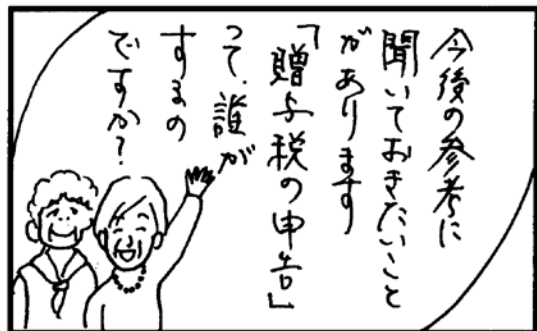 今後の参考に
聞いておきたいこと
があります
「贈与税の申告」
って、誰が
するの
ですか？